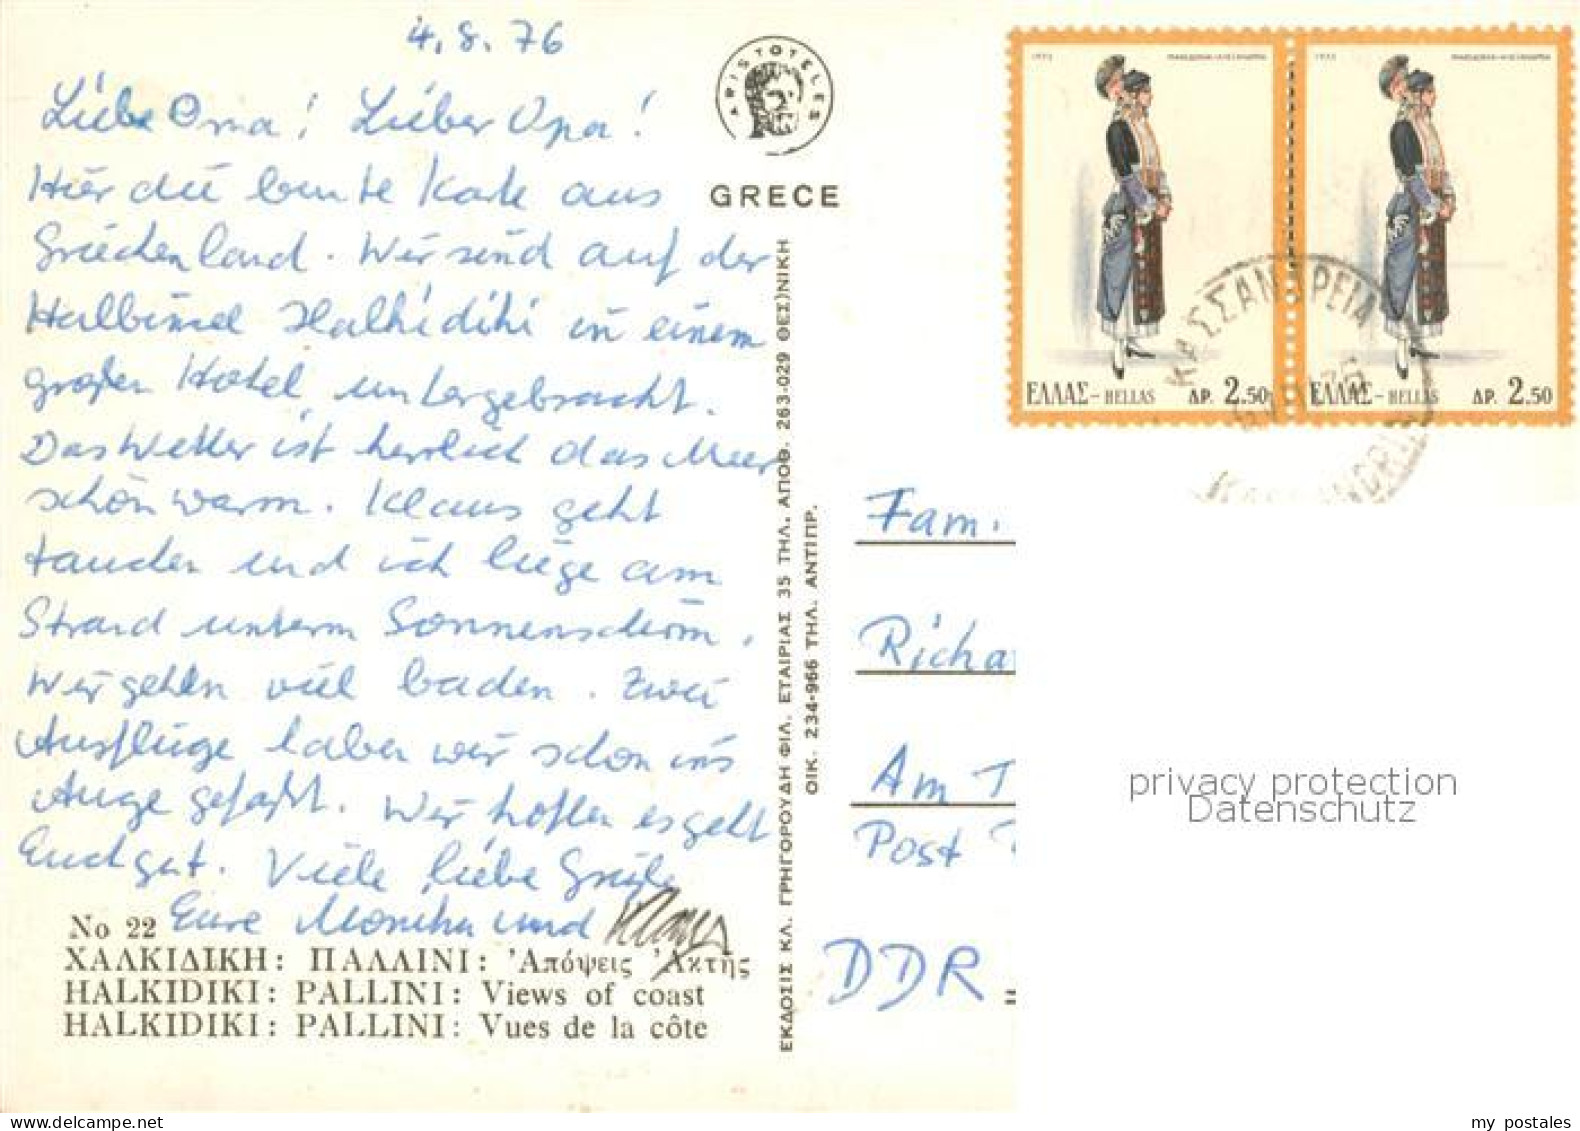 4.8.76
Liebe Oma! Lieber Opa!
Hier die bunte Karte aus
Griechenland. Wir sind auf der
Halbinsel Halkidiki in einem
großen Hotel untergebracht.
Das Wetter ist herrlich das Meer
schön warm. Klaus geht
tauchen und ich liege am
Strand unterm Sonnenschirm.
Wir gehen viel baden. Zwei
Ausflüge haben wir schon ins
Auge gefaßt. Wir hoffen es geht
Euch gut. Viele liebe Grüße
Eure Monika und Klaus
No 22
ΧΑΛΚΙΔΙΚΗ: ΠΑΛΛΙΝΙ: Ἀπόψεις Ἀκτῆς
HALKIDIKI: PALLINI: Views of coast
HALKIDIKI: PALLINI: Vues de la côte
ARISTOTELES
GRECE
ΕΚΔΟΣΙΣ ΚΛ. ΓΡΗΓΟΡΟΥΔΗ ΦΙΛ. ΕΤΑΙΡΙΑΣ 35 ΤΗΛ. ΑΠΟΘ. 263-029 ΘΕΣ)ΝΙΚΗ
ΟΙΚ. 234-966 ΤΗΛ. ΑΝΤΙΠΡ.
ΕΛΛΑΣ-HELLAS ΔΡ. 2.50
ΕΛΛΑΣ-HELLAS ΔΡ. 2.50
ΚΑΣΣΑΝΔΡΕΙΑ
Fam.
Richa
Am T
Post
DDR =
privacy protection
Datenschutz
my postales
delcampe.net